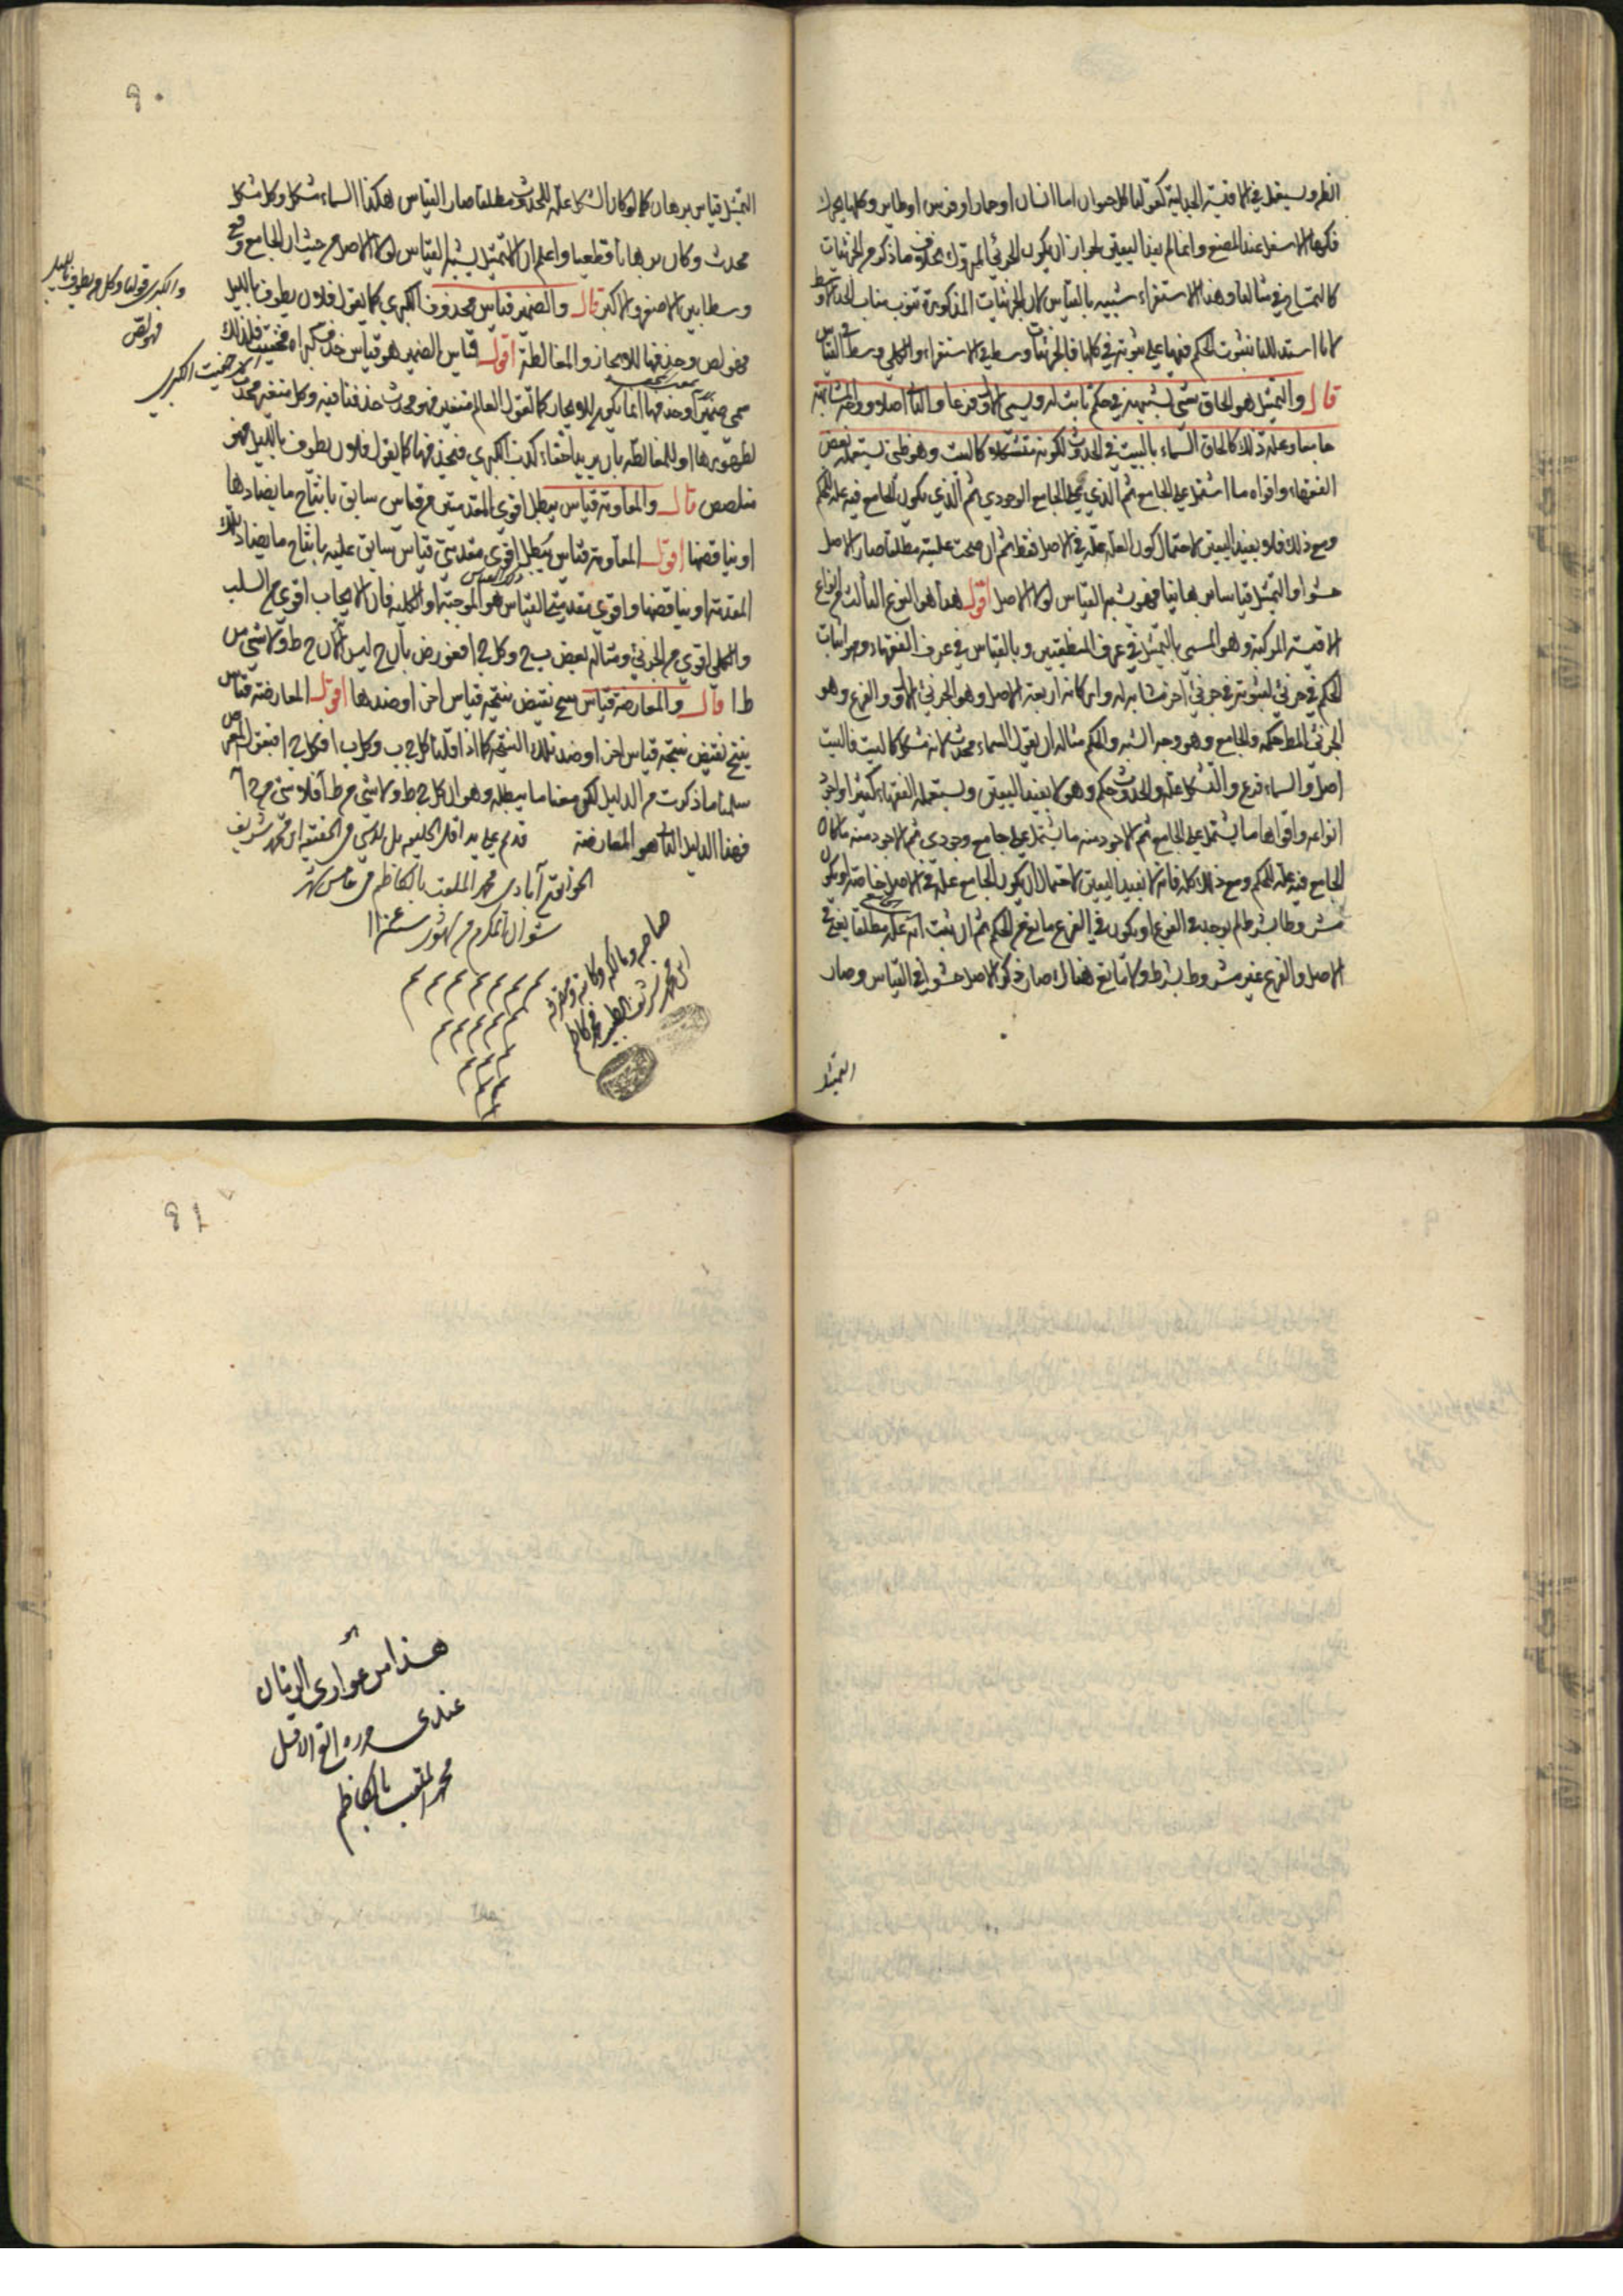 الظرو يستعمل في الاقيسة الجدلية كقولنا كل حيوان اما انسان او حمار او فرس او طاير وكلها يحرك
فكها الاسفل عند المضغ وانما لم يفد اليقين لجواز ان يكون الجزئي المتروك بخلاف ما ذكر من الجزئيات
كالتمساح في مثالنا وهذا الاستقراء شبيه بالقياس لان الجزئيات المذكورة تنوب مناب الحد الاوسط
لانا استدللنا بثبوت الحكم فيها على ثبوته في كلها فالجزئيات وسط في الاستقراء والكلي وسط في القياس
قال والتمثيل هو الحاق شيء بشبيهه في حكم ثابت له ويسمى الاول فرعا والثاني اصلا ووجه المشابهة
جامعا وعلة وذلك كالحاق السماء بالبيت في الحدوث لكونه متشكلا كالبيت وهو ظني يستعمله بعض
الفقهاء واقواه ما اشتمل على الجامع ثم الذي على الجامع الوجودي ثم الذي يكون الجامع فيه علة الحكم
ومع ذلك فلا يفيد اليقين لاحتمال كون العلة علة في الاصل فقط ثم ان صحت عليته مطلقا صار الاصل
حشوا والتمثيل قياسا برهانيا فهو شبه القياس لولا الاصل اقول هذا هو النوع الثالث من انواع
الاقيسة المركبة وهو المسمى بالتمثيل في عرف المنطقيين وبالقياس في عرف الفقهاء وهو اثبات
الحكم في جزئي لثبوته في جزئي اخر مشابه له واركانه اربعة الاصل وهو الجزئي الاول والفرع وهو
الجزئي المط حكمه والجامع وهو وجه الشبه والحكم مثاله ان يقول السماء محدث لانه مشكل كالبيت فالبيت
اصل والسماء فرع والتشكل علة والحدوث حكم وهو لا يفيد اليقين ويستعمله الفقهاء كثيرا واجود
انواعه واقواها ما يشتمل على الجامع ثم الاجود منه ما يشتمل على جامع وجودي ثم الاجود منه ما كان
الجامع فيه علة الحكم ومع ذلك كله فانه لا يفيد اليقين لاحتمال ان يكون الجامع علة في الاصل خاصة او يكون
مشروطا بشرط لم يوجد في الفرع او يكون في الفرع مانع من الحكم ثم ان ثبت انه علة مطلقا يعني في
الاصل والفرع غير مشروط بشرط ولا مانع هناك صار ذكر الاصل حشوا في القياس وصار
التمثيل
٩٠
التمثيل قياس برهان كما لو كان الشكل علة للحدوث مطلقا صار القياس هكذا السماء مشكل وكل مشكل
محدث وكان برهانا قطعيا واعلم ان التمثيل يشبه القياس لولا الاصل من حيث ان الجامع وقع
وسطا بين الاصغر والاكبر قال والضمير قياس محذوف الكبرى كما يقول فلان يطوف بالليل
فهو لص وحذفها للايجاز والمغالطة اقول قياس الضمير هو قياس حذف كبراه فخفيت فلذلك
سمي ضميرا وحذفها انما يكون للايجاز كما تقول العالم متغير فهو محدث حذفنا فيه وكل متغير محدث
لظهورها او للمغالطة بان يريد اخفاء كذب الكبرى فتحذفها كما يقول فلان يطوف بالليل فهو
متلصص قال والمعاوقة قياس يبطل اقوى المقدمتين من قياس سابق بانتاج ما يضادها
او يناقضها اقول المعاوقة قياس يبطل اقوى مقدمتي قياس سابق عليه بانتاج ما يضاد تلك
المقدمة او يناقضها واقوى مقدمتي القياس هو الموجبة او الكلية فان الايجاب اقوى من السلب
والكلي اقوى من الجزئي ومثاله بعض ب ج وكل ج ا فعورض بان ج ليس ا لان ج ط ولا شيء من
ط ا قال والمعارضة قياس ينتج نقيض نتيجة قياس اخر او ضدها اقول المعارضة قياس
ينتج نقيض نتيجة قياس اخر او ضد تلك النتيجة كما اذا قلنا كل ج ب وكل ب ا فكل ج ا فيقول المعترض
سلمنا ما ذكرت من الدليل لكن معنا ما يبطله وهو ان كل ج ط ولا شيء من ط ا فلا شيء من ج ا
فهذا الدليل الثاني هو المعارضة قد تم على يد اقل الخليقة بل لا شيء في الحقيقة ابن محمد شريف
محمد الملقب بالكاظم في خامس شهر
شوال المكرم من شهور سنة
والكبرى قولنا وكل من يطوف بالليل
فهو لص
خفيت الكبرى
صاحبه ومالكه وكاتبه
ابن محمد شريف الطبيب محمد كاظم
٩١
هذا من عواري الزمان
عندي حرره الاقل
محمد الملقب بالكاظم